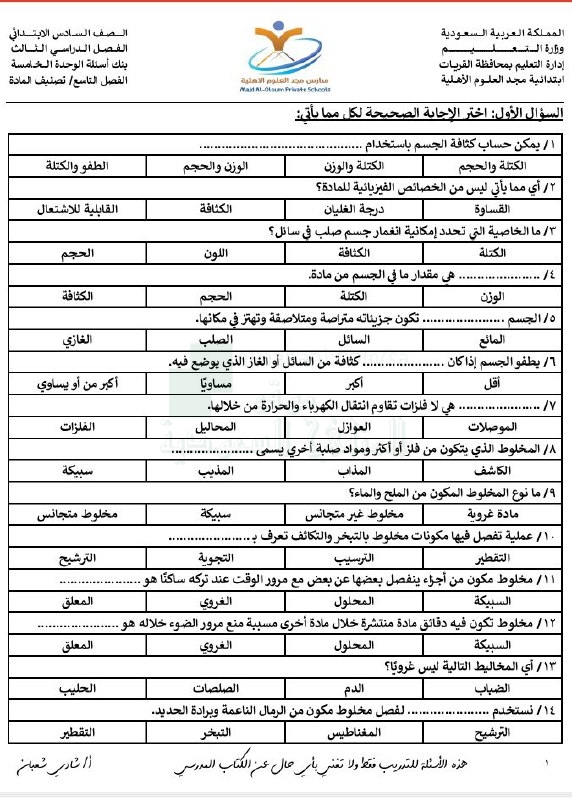 المملكة العربية السعودية
وزارة التـعـلـيـــــــــم
إدارة التعليم بمحافظة القريات
ابتدائية مجد العلوم الأهلية
مدارس مجد العلوم الاهلية
Majd Al-Oloum Private Schools
الصـف السادس الابتـدائي
الفصل الدراسي الثالث
بنك أسئلة الوحدة الخامسة
الفصل التاسع/ تصنيف المادة
السؤال الأول: اختر الإجابة الصحيحة لكل مما يأتي:
١/ يمكن حساب كثافة الجسم باستخدام ..........................................
الكتلة والحجم الكتلة والوزن الوزن والحجم الطفو والكتلة
٢/ أي مما يأتي ليس من الخصائص الفيزيائية للمادة؟
القساوة درجة الغليان الكثافة القابلية للاشتعال
٣/ ما الخاصية التي تحدد إمكانية انغمار جسم صلب في سائل؟
الكتلة الكثافة اللون الحجم
٤/ ...................... هي مقدار ما في الجسم من مادة.
الوزن الكتلة الحجم الكثافة
٥/ الجسم ...................... تكون جزيئاته متراصة ومتلاصقة وتهتز في مكانها.
المائع السائل الصلب الغازي
٦/ يطفو الجسم إذا كان ...................... كثافة من السائل أو الغاز الذي يوضع فيه.
أقل أكبر مساويًا أكبر من أو يساوي
٧/ ...................... هي لا فلزات تقاوم انتقال الكهرباء والحرارة من خلالها.
الموصلات العوازل المحاليل الفلزات
٨/ المخلوط الذي يتكون من فلز أو أكثر ومواد صلبة أخري يسمى ......................
الكاشف المذاب المذيب سبيكة
٩/ ما نوع المخلوط المكون من الملح والماء؟
مادة غروية مخلوط غير متجانس سبيكة مخلوط متجانس
١٠/ عملية تفصل فيها مكونات مخلوط بالتبخر والتكاثف تعرف بـ ......................
التقطير الترسيب التجوية الترشيح
١١/ مخلوط مكون من أجزاء ينفصل بعضها عن بعض مع مرور الوقت عند تركه ساكنًا هو ......................
السبيكة المحلول الغروي المعلق
١٢/ مخلوط تكون فيه دقائق مادة منتشرة خلال مادة أخرى مسببة منع مرور الضوء خلاله هو ......................
السبيكة المحلول الغروي المعلق
١٣/ أي المخاليط التالية ليس غرويًا؟
الضباب الدم الصلصات الحليب
١٤/ نستخدم ...................... لفصل مخلوط مكون من الرمال الناعمة وبرادة الحديد.
الترشيح المغناطيس التبخر التقطير
١ هذه الأسئلة للتدريب فقط ولا تغني بأي حال عن الكتاب المدرسي أ/ شادي شعبان